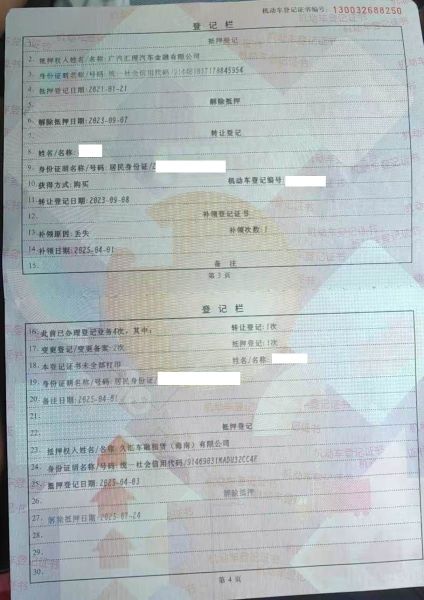 机动车登记证书编号: 130032688250
登记栏
1. 抵押登记
2. 抵押权人姓名/名称:广汽汇理汽车金融有限公司
3. 身份证明名称/号码:统一社会信用代码/
4. 抵押登记日期:2021-01-21
5. 解除抵押
6. 解除抵押日期:2023-09-07
7. 转让登记
8. 姓名/名称:
9. 身份证明名称/号码:居民身份证/
10. 获得方式:购买 机动车登记编号:
11. 转让登记日期:2023-09-08
12. 补领登记证书
13. 补领原因:丢失 补领次数:1
14. 补领日期:2025-04-01
15. 备注
第 3 页
登记栏
16. 此前已办理登记业务4次,其中: 转让登记:1次
17. 变更登记/变更备案:2次 抵押登记:1次
18. 本登记证书未全部打印 姓名/名称:
19. 身份证明名称/号码:居民身份证/
20. 备注日期:2025-04-01
21.
22. 抵押登记
23. 抵押权人姓名/名称:久汇车融租赁(海南)有限公司
24. 身份证明名称/号码:统一社会信用代码/91469031MADU32CC4E
25. 抵押登记日期:2025-04-03
26. 解除抵押
27. 解除抵押日期:2025-07-24
28.
29.
30.
第 4 页